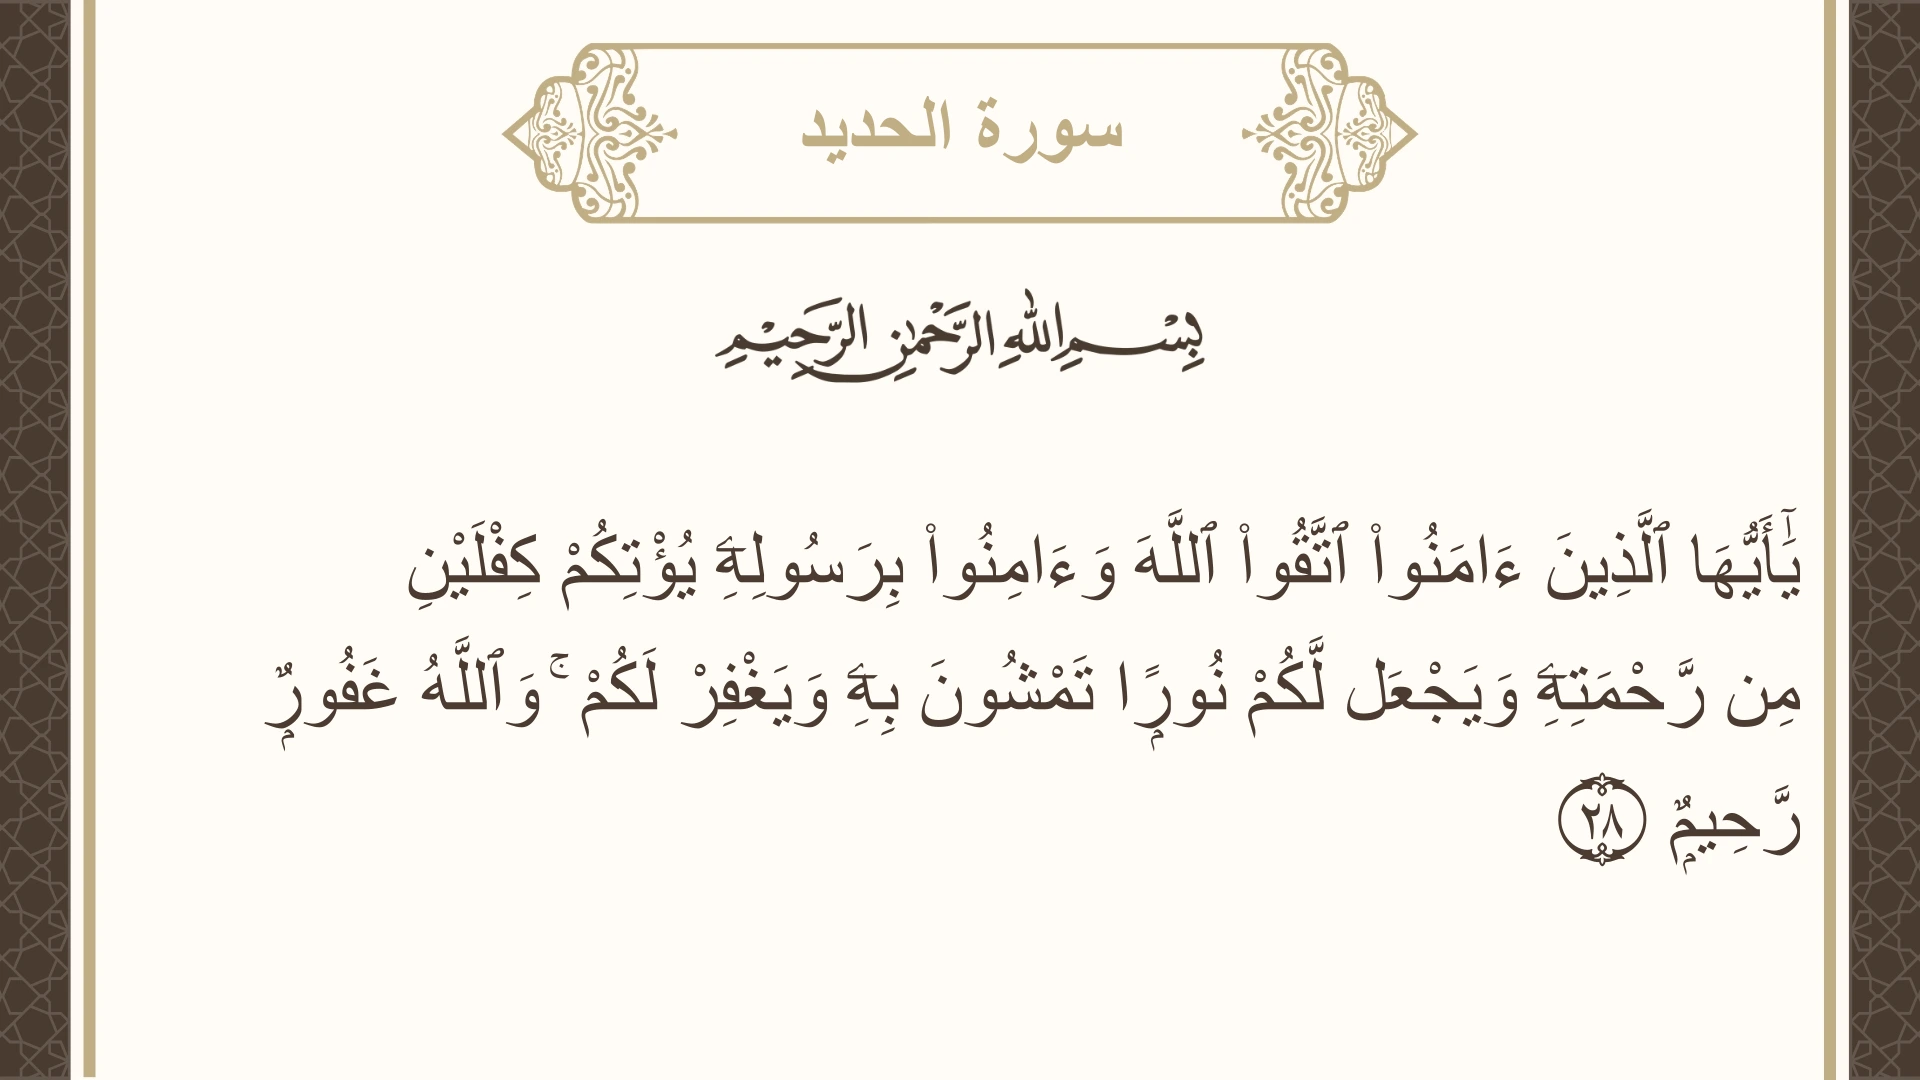 سورة الحديد
بِسْمِ اللهِ الرَّحْمٰنِ الرَّحِيْمِ
يَٰٓأَيُّهَا ٱلَّذِينَ ءَامَنُوا۟ ٱتَّقُوا۟ ٱللَّهَ وَءَامِنُوا۟ بِرَسُولِهِۦ يُؤْتِكُمْ كِفْلَيْنِ
مِن رَّحْمَتِهِۦ وَيَجْعَل لَّكُمْ نُورًۭا تَمْشُونَ بِهِۦ وَيَغْفِرْ لَكُمْ ۚ وَٱللَّهُ غَفُورٌۭ
رَّحِيمٌۭ ٢٨